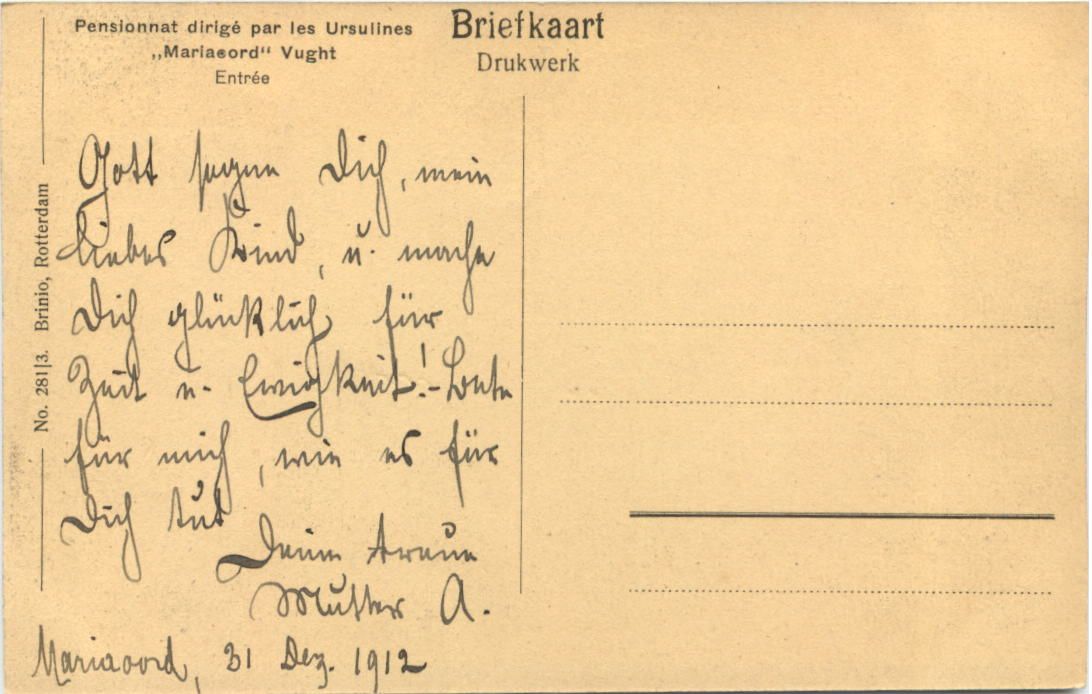 Pensionnat dirigé par les Ursulines
„Mariaoord“ Vught
Entrée
Briefkaart
Drukwerk
No. 281|3. Brinio, Rotterdam
Gott segne Dich, mein
liebes Kind, u. mache
Dich glücklich für
Zeit u. Ewigkeit! - Bete
für mich, wie es für
Dich tut
Deine treue
Mutter A.
Mariaoord, 31 Dez. 1912